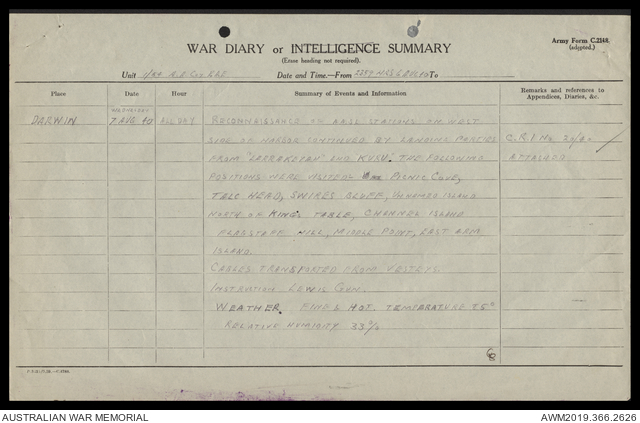 Army Form C.2148.
(adapted.)
WAR DIARY or INTELLIGENCE SUMMARY
(Erase heading not required).
Unit
Date and Time.—From To
Place Date Hour Summary of Events and Information Remarks and references to Appendices, Diaries, &c.
WEDNESDAY
DARWIN 7 AUG 40 ALL DAY RECONNAISSANCE OF BASE STATIONS ON WEST
SIDE OF HARBOR CONTINUED BY LANDING PARTIES
FROM "LARRAKEEYAH" AND KUSU. THE FOLLOWING ATTACHED
POSITIONS WERE VISITED PICNIC COVE,
TALC HEAD, SWIRES BLUFF, ISLAND
NORTH OF KING. TABLE, CHANNEL ISLAND
FLAGSTAFF HILL, MIDDLE POINT, EAST ARM
ISLAND.
CABLES TRANSPORTED FROM VESTEYS
INSTRUCTION LEWIS GUN.
WEATHER. FINE & HOT. TEMPERATURE 85°
RELATIVE HUMIDITY 33%
AUSTRALIAN WAR MEMORIAL
AWM2019.366.2626